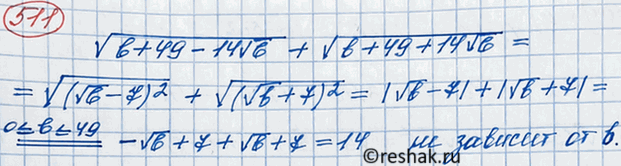 511
√(b+49-14√b) + √(b+49+14√b) =
= √((√b-7)²) + √((√b+7)²) = |√b-7| + |√b+7| =
0≤b≤49 = -√b+7+√b+7=14 не зависит от b.
©reshak.ru